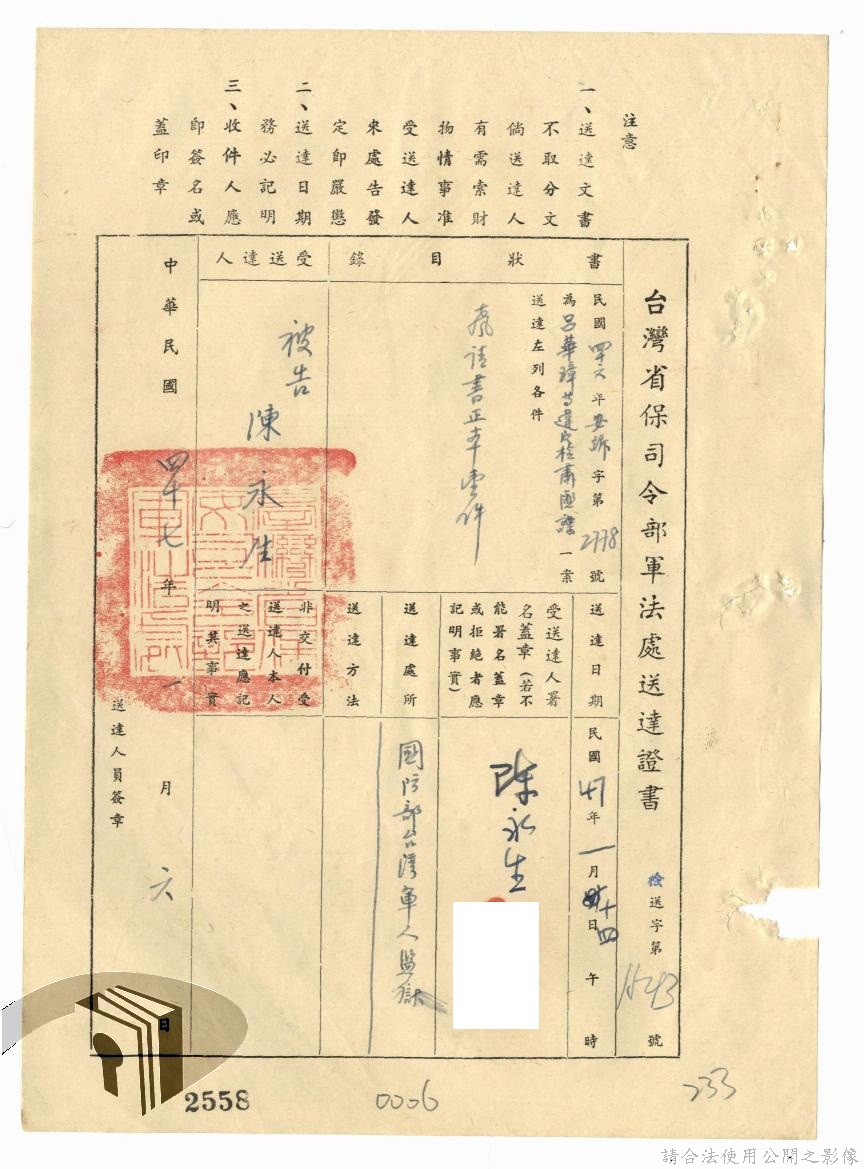 注意
一、送達文書
不取分文
倘送達人
有需索財
物情事准
受送達人
來處告發
定即嚴懲
二、送達日期
務必記明
三、收件人應
即簽名或
蓋印章
台灣省保司令部軍法處送達證書
檢送字第 號
書狀目錄
民國四六年安訴字第2778號
為呂華璋等 一案
送達左列各件
書正本壹件
送達日期
民國47年一月十四日午時
受送達人署
名蓋章(若不
能署名蓋章
或拒絕者應
記明事實)
陳永生
送達處所
國防部台灣軍人監獄
送達方法
受送達人
被告陳永生
非交付受
送達人本人
之送達應記
明其事實
中華民國四十七年一月六日
送達人員簽章
2558
0006
233
請合法使用公開之影像